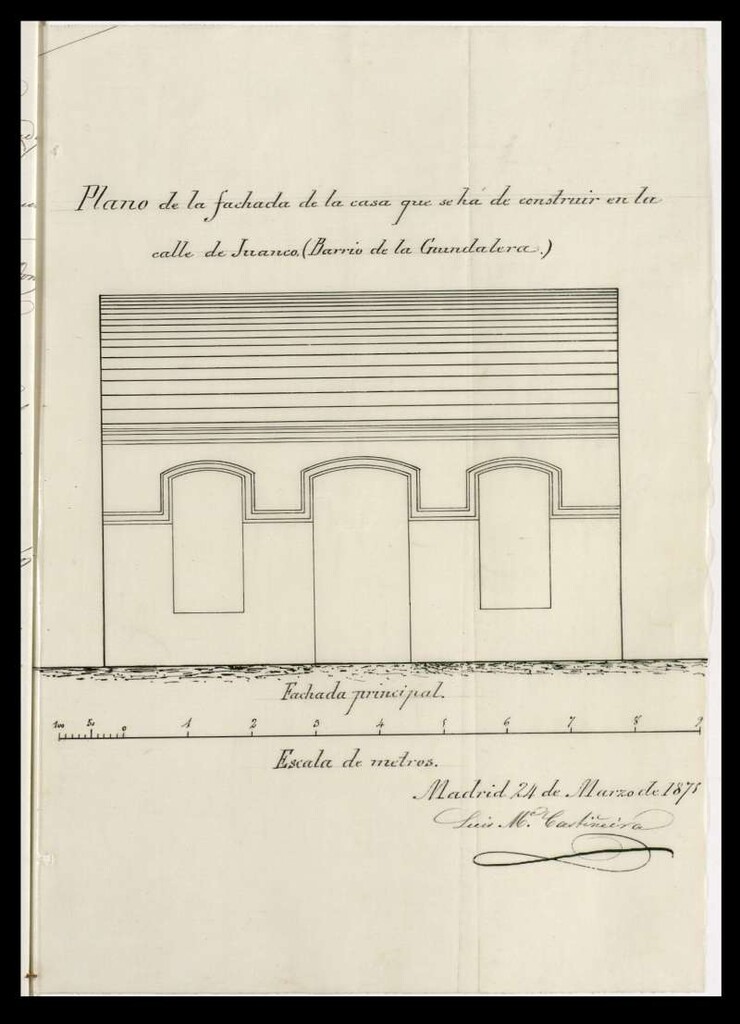 Plano de la fachada de la casa que se há de construir en la
calle de Juanco, (Barrio de la Guindalera.)
Fachada principal.
100 50 0 1 2 3 4 5 6 7 8 9
Escala de metros.
Madrid 24 de Marzo de 1875
Luis Mª. Castiñeira